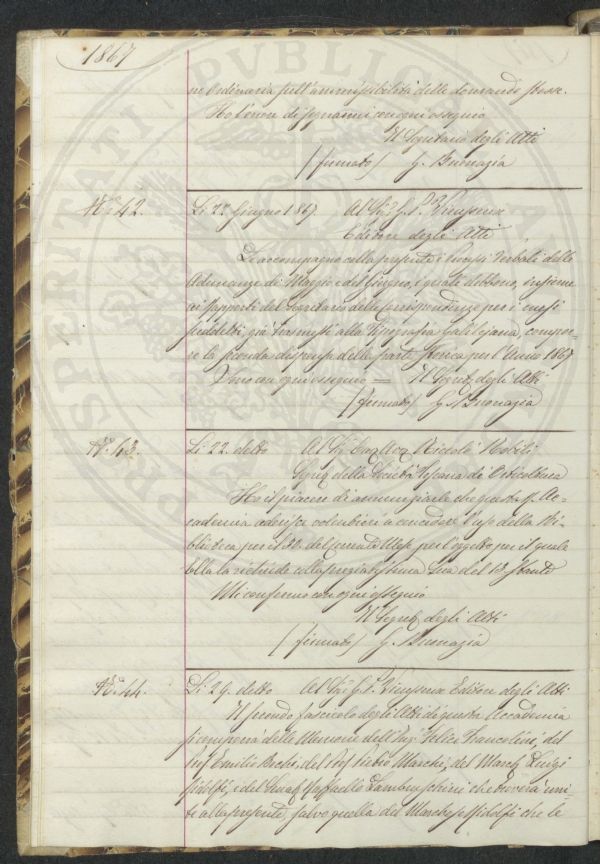 1867
ne Ordinaria sull'ammissibilità delle domande stesse.
Ho l'onore di segnarmi con ogni ossequio
Il Segretario degli Atti
(firmato) G. Buonazia
N.° 42.
Li 22 Giugno 1867. Al Sig.r G. P. Vieusseux
Editore degli Atti
Le accompagno colla presente i Processi Verbali delle
Adunanze di Maggio e del Giugno, i quali debbono, insieme
ai Rapporti del Segretario delle Corrispondenze per i mesi
suddetti, già trasmessi alla Tipografia Galilejana, compor-
re la seconda dispensa della parte Storica per l'Anno 1867
Sono con ogni ossequio = Il Segret.o degli Atti
(firmato) G. Buonazia
N.° 43.
Li 22. detto Al Sig. Cav. Avv. Niccolò Nobili
Segret. della Società Toscana di Orticultura
Ho il piacere di annunziarle che questa R. Ac-
cademia aderisce volentieri a concedere l'uso della Bi-
blioteca per il 30. del corrente Mese per l'oggetto per il quale
Ella la richiede colla pregiatissima Sua del 13. stante
Mi confermo con ogni ossequio
Il Segret. degli Atti
(firmato) G. Buonazia
N.° 44.
Li 29. detto Al Sig.r G. P. Vieusseux Editore degli Atti
Il secondo fascicolo degli Atti di questa Accademia
si comporrà delle Memorie dell'Ing.e Felice Francolini, del
Prof. Emilio Bechi, del Prof. Pietro Marchi, del March. Luigi
Ridolfi, e del Senat. Raffaello Lambruschini che troverà uni-
te alla presente, salvo quella del Marchese Ridolfi che le